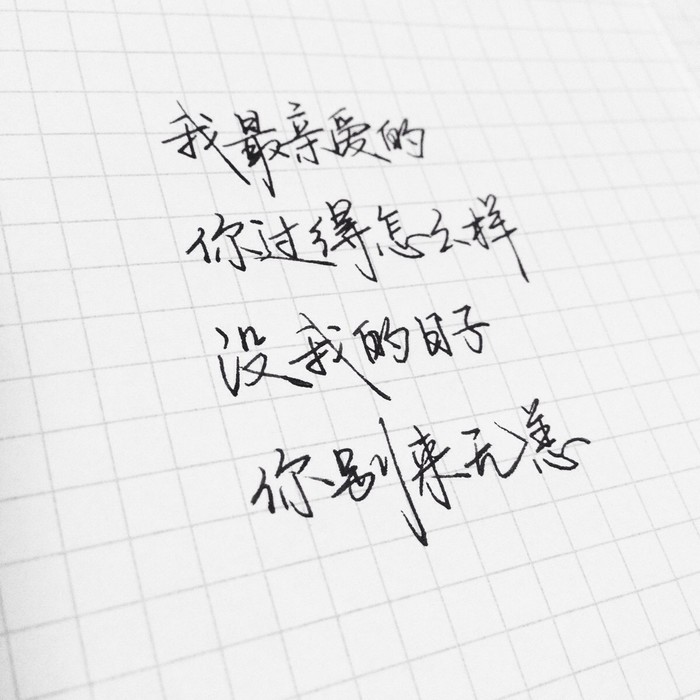 我最亲爱的
你过得怎么样
没我的日子
你别来无恙